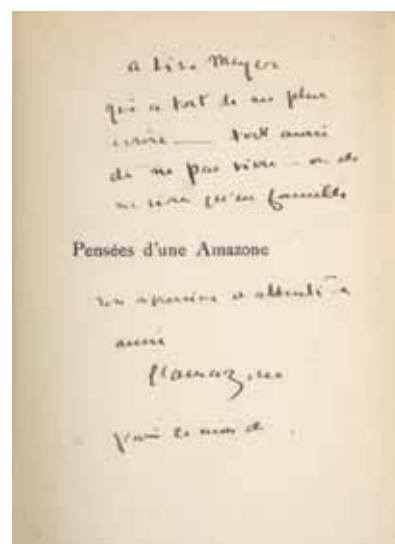 à Lise Meyer
qui a tort de ne plus
écrire — tort aussi
de ne pas vivre – ou de
ne vivre qu'en famille
Pensées d'une Amazone
son et attenti
aussi
l'amazone